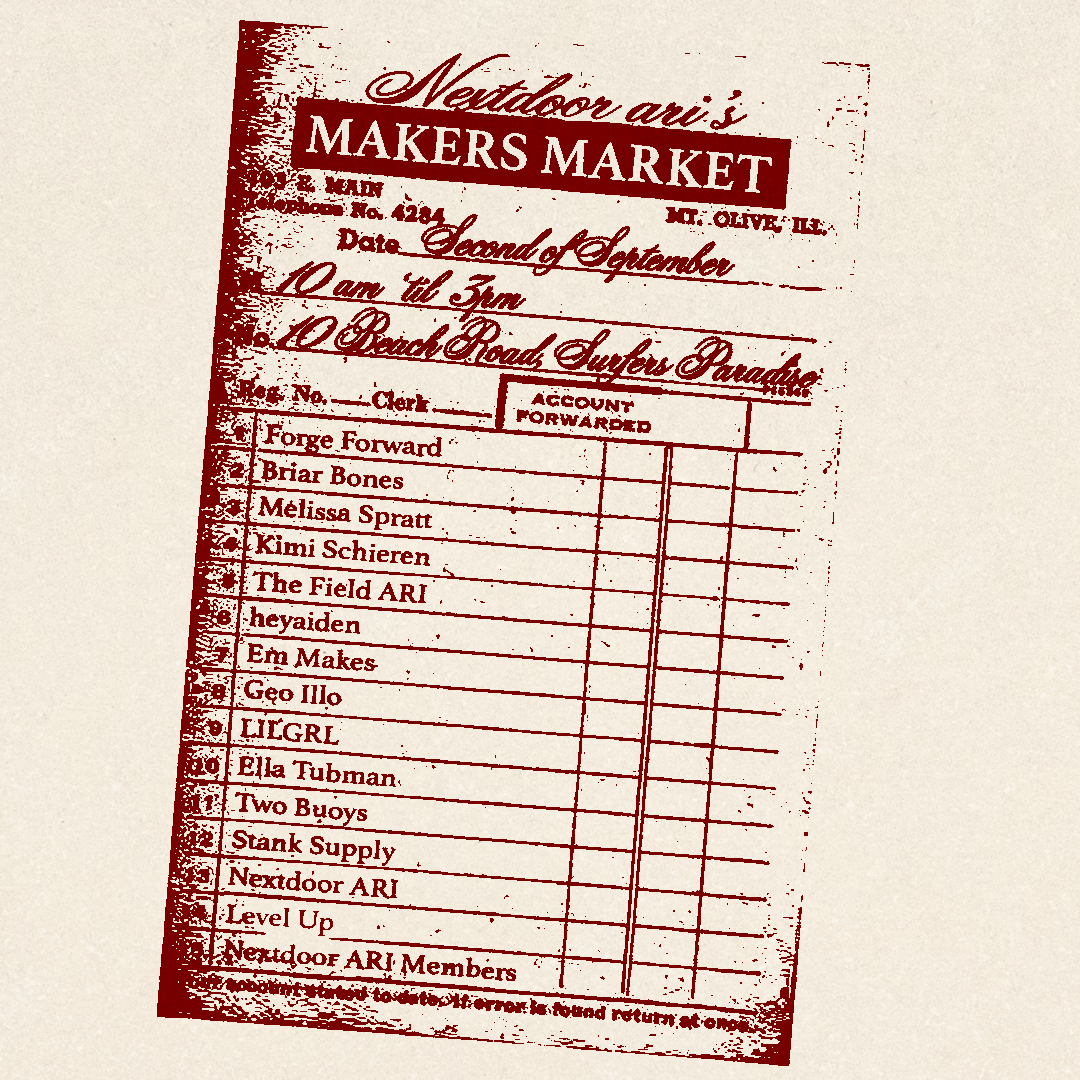 Nextdoor ari's
MAKERS MARKET
E. MAIN
Telephone No. 4284
MT. OLIVE, ILL.
Date Second of September
10 am 'til 3pm
No. 10 Beach Road, Surfers Paradise
Reg. No. Clerk
ACCOUNT
FORWARDED
1 Forge Forward
2 Briar Bones
3 Melissa Spratt
4 Kimi Schieren
5 The Field ARI
6 heyaiden
7 Em Makes
8 Geo Illo
9 LILGRL
10 Ella Tubman
11 Two Buoys
12 Stank Supply
13 Nextdoor ARI
14 Level Up
15 Nextdoor ARI Members
account stated to date. If error is found return at once.